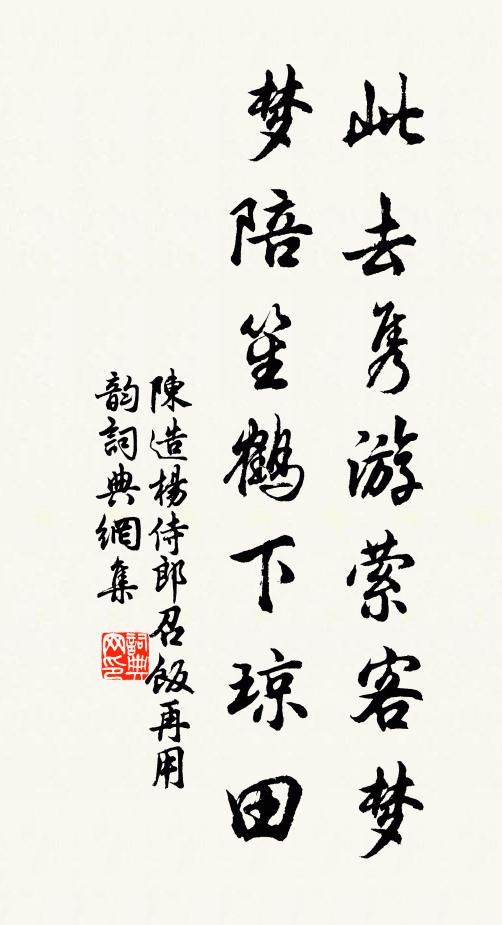 此去隽游萦客梦
梦陪笙鹤下琼田
陳造楊侍郎召飯再用
韵詞典網集
詞典网印